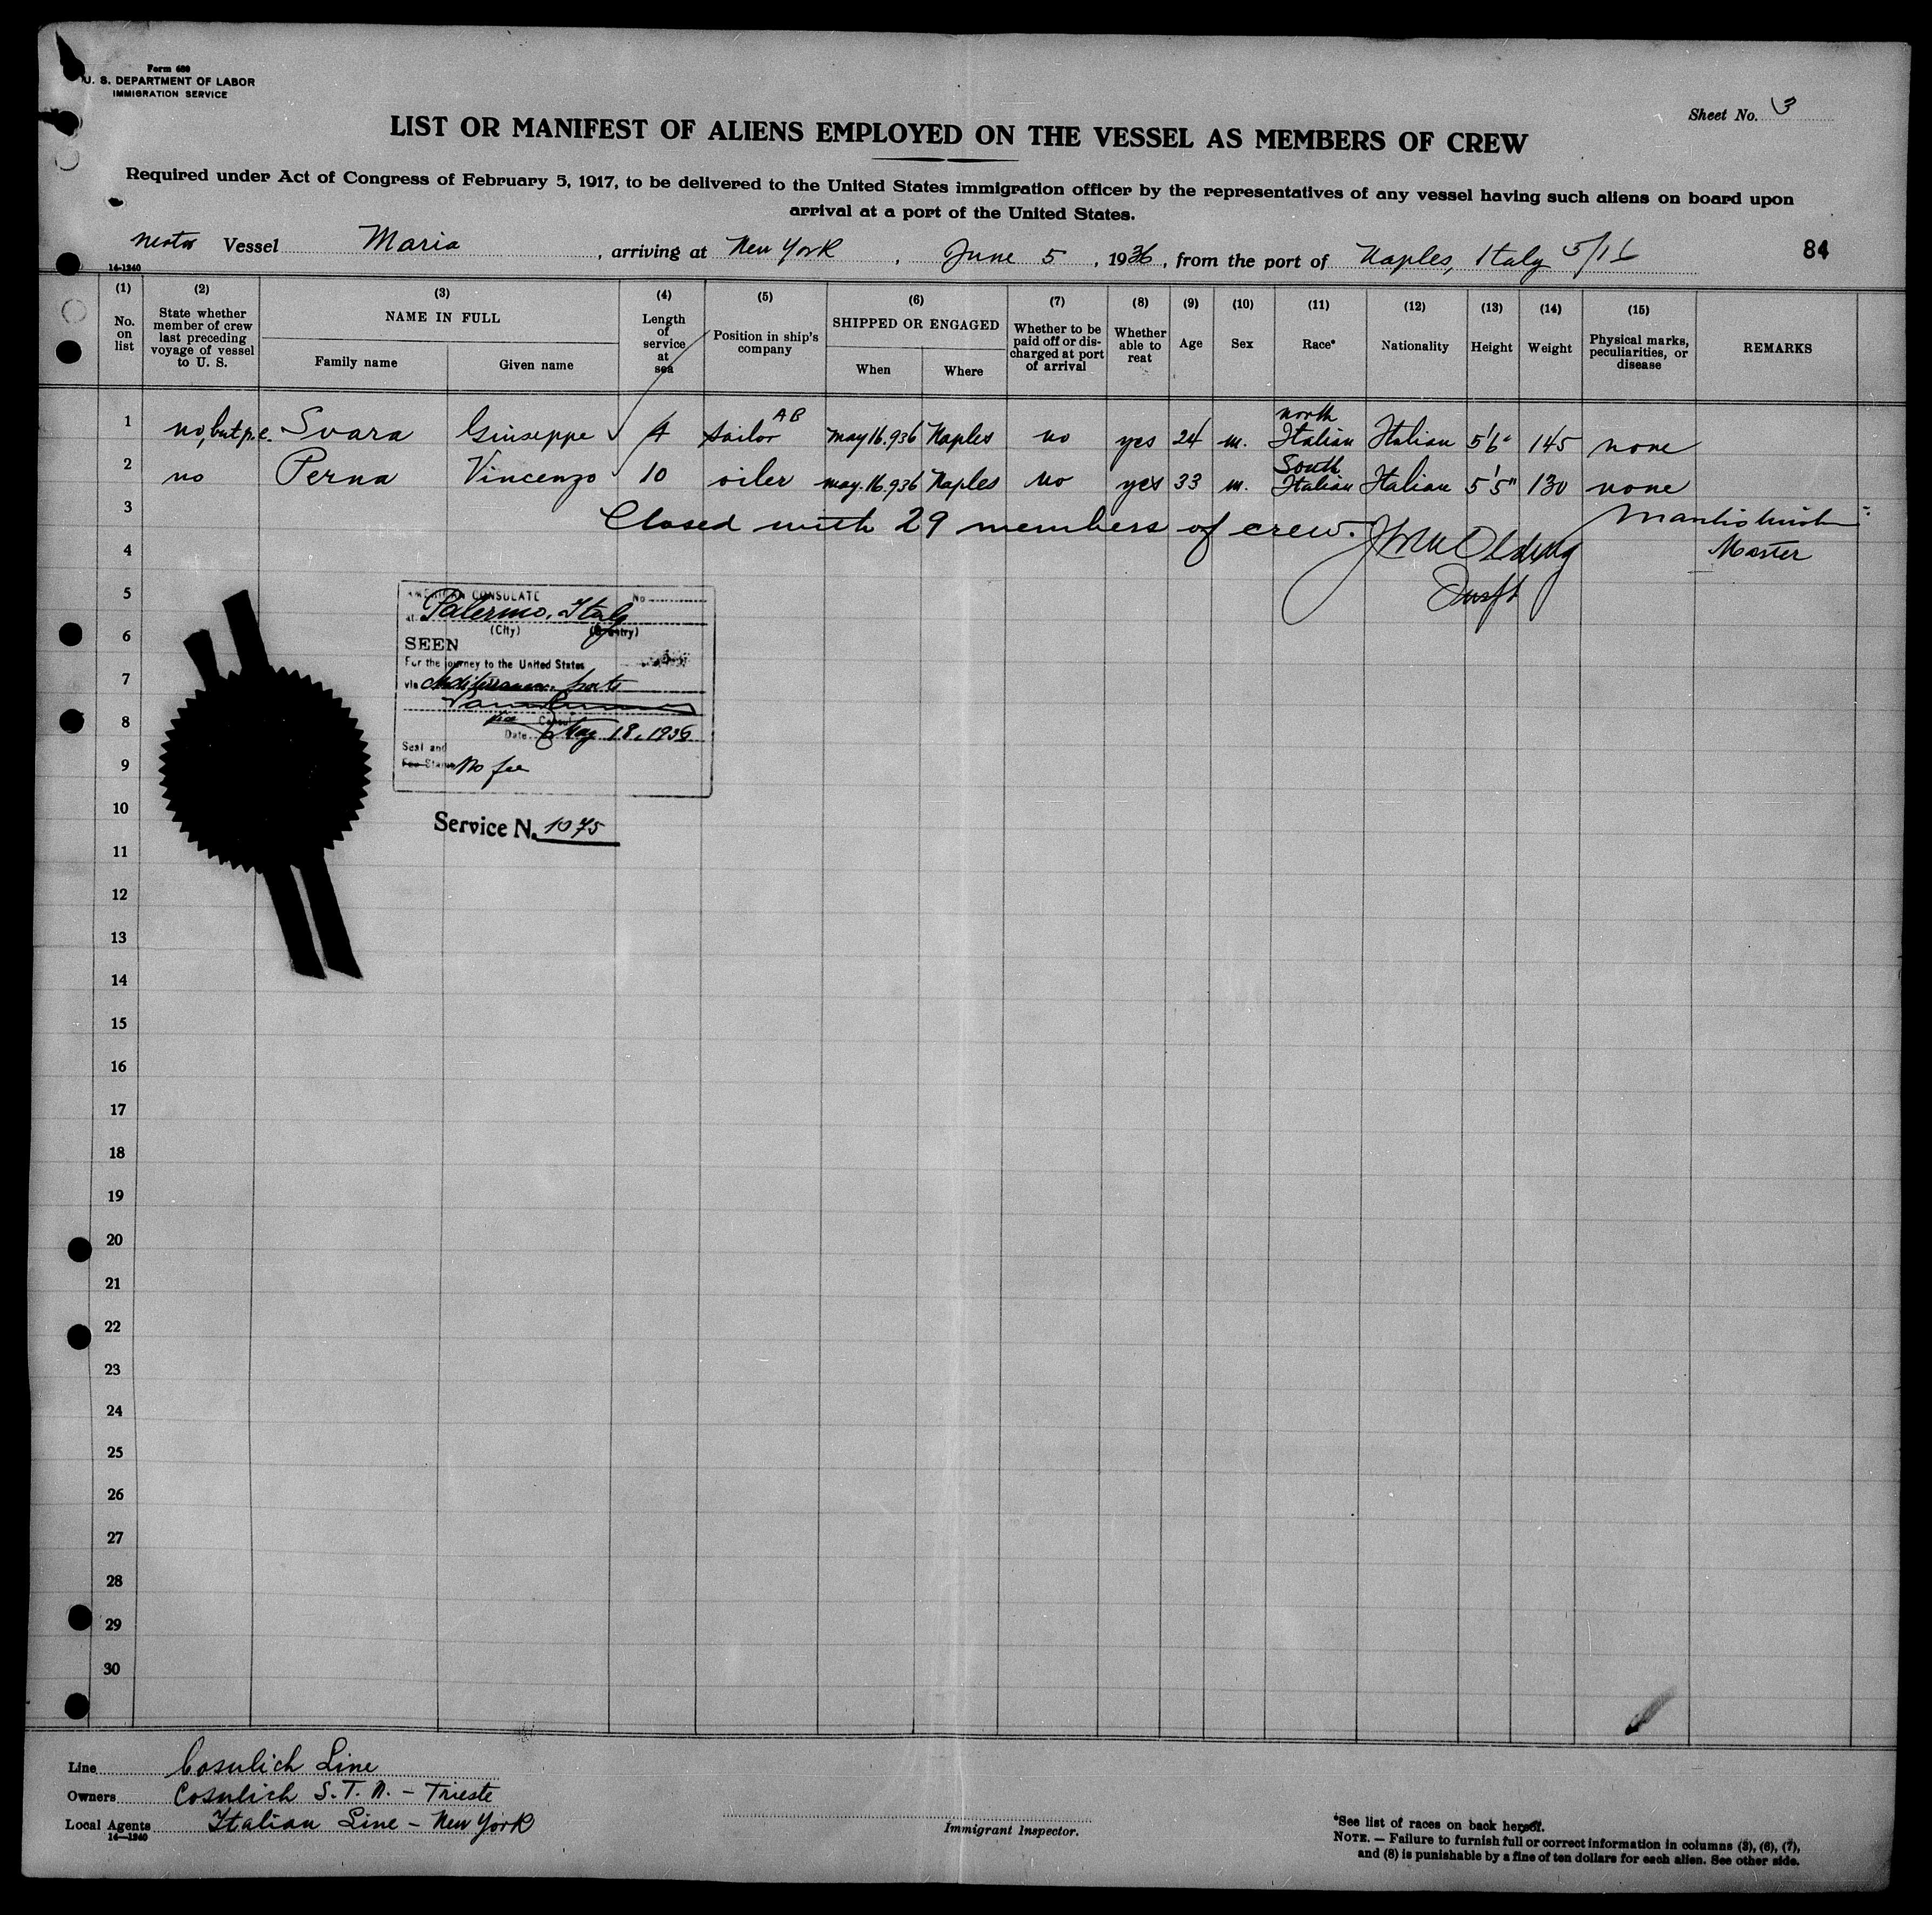 Form 680
U. S. DEPARTMENT OF LABOR
IMMIGRATION SERVICE
Sheet No. 3
LIST OR MANIFEST OF ALIENS EMPLOYED ON THE VESSEL AS MEMBERS OF CREW
Required under Act of Congress of February 5, 1917, to be delivered to the United States immigration officer by the representatives of any vessel having such aliens on board upon
arrival at a port of the United States.
Vessel Maria, arriving at New York, June 5, 1936, from the port of Naples, Italy 5/16
84
14-1240
(1) No. on list
(2) State whether member of crew last preceding voyage of vessel to U. S.
(3) NAME IN FULL
Family name Given name
(4) Length of service at sea
(5) Position in ship's company
(6) SHIPPED OR ENGAGED
When Where
(7) Whether to be paid off or discharged at port of arrival
(8) Whether able to reat
(9) Age
(10) Sex
(11) Race*
(12) Nationality
(13) Height
(14) Weight
(15) Physical marks, peculiarities, or disease
REMARKS
1 no, but p.c. Svara Giuseppe 4 sailor AB May 16.936 Naples no yes 24 m. North Italian Italian 5'6" 145 none
2 no Perna Vincenzo 10 oiler May.16.936 Naples no yes 33 m. South Italian Italian 5'5" 130 none
3 Closed with 29 members of crew.
Master
4
5
6
7
8
9
10
11
12
13
14
15
16
17
18
19
20
21
22
23
24
25
26
27
28
29
30
AMERICAN CONSULATE No
at Palermo, Italy
(City) (Country)
SEEN
For the journey to the United States
via Mediterranean ports
Vice Consul
Date May 18, 1936
Seal and
Fee Stamp No fee
Service N. 1075
Line Cosulich Line
Owners Cosulich S.T.N. - Trieste
Local Agents Italian Line - New York
14—1240
Immigrant Inspector.
*See list of races on back hereof.
NOTE. — Failure to furnish full or correct information in columns (3), (6), (7),
and (8) is punishable by a fine of ten dollars for each alien. See other side.